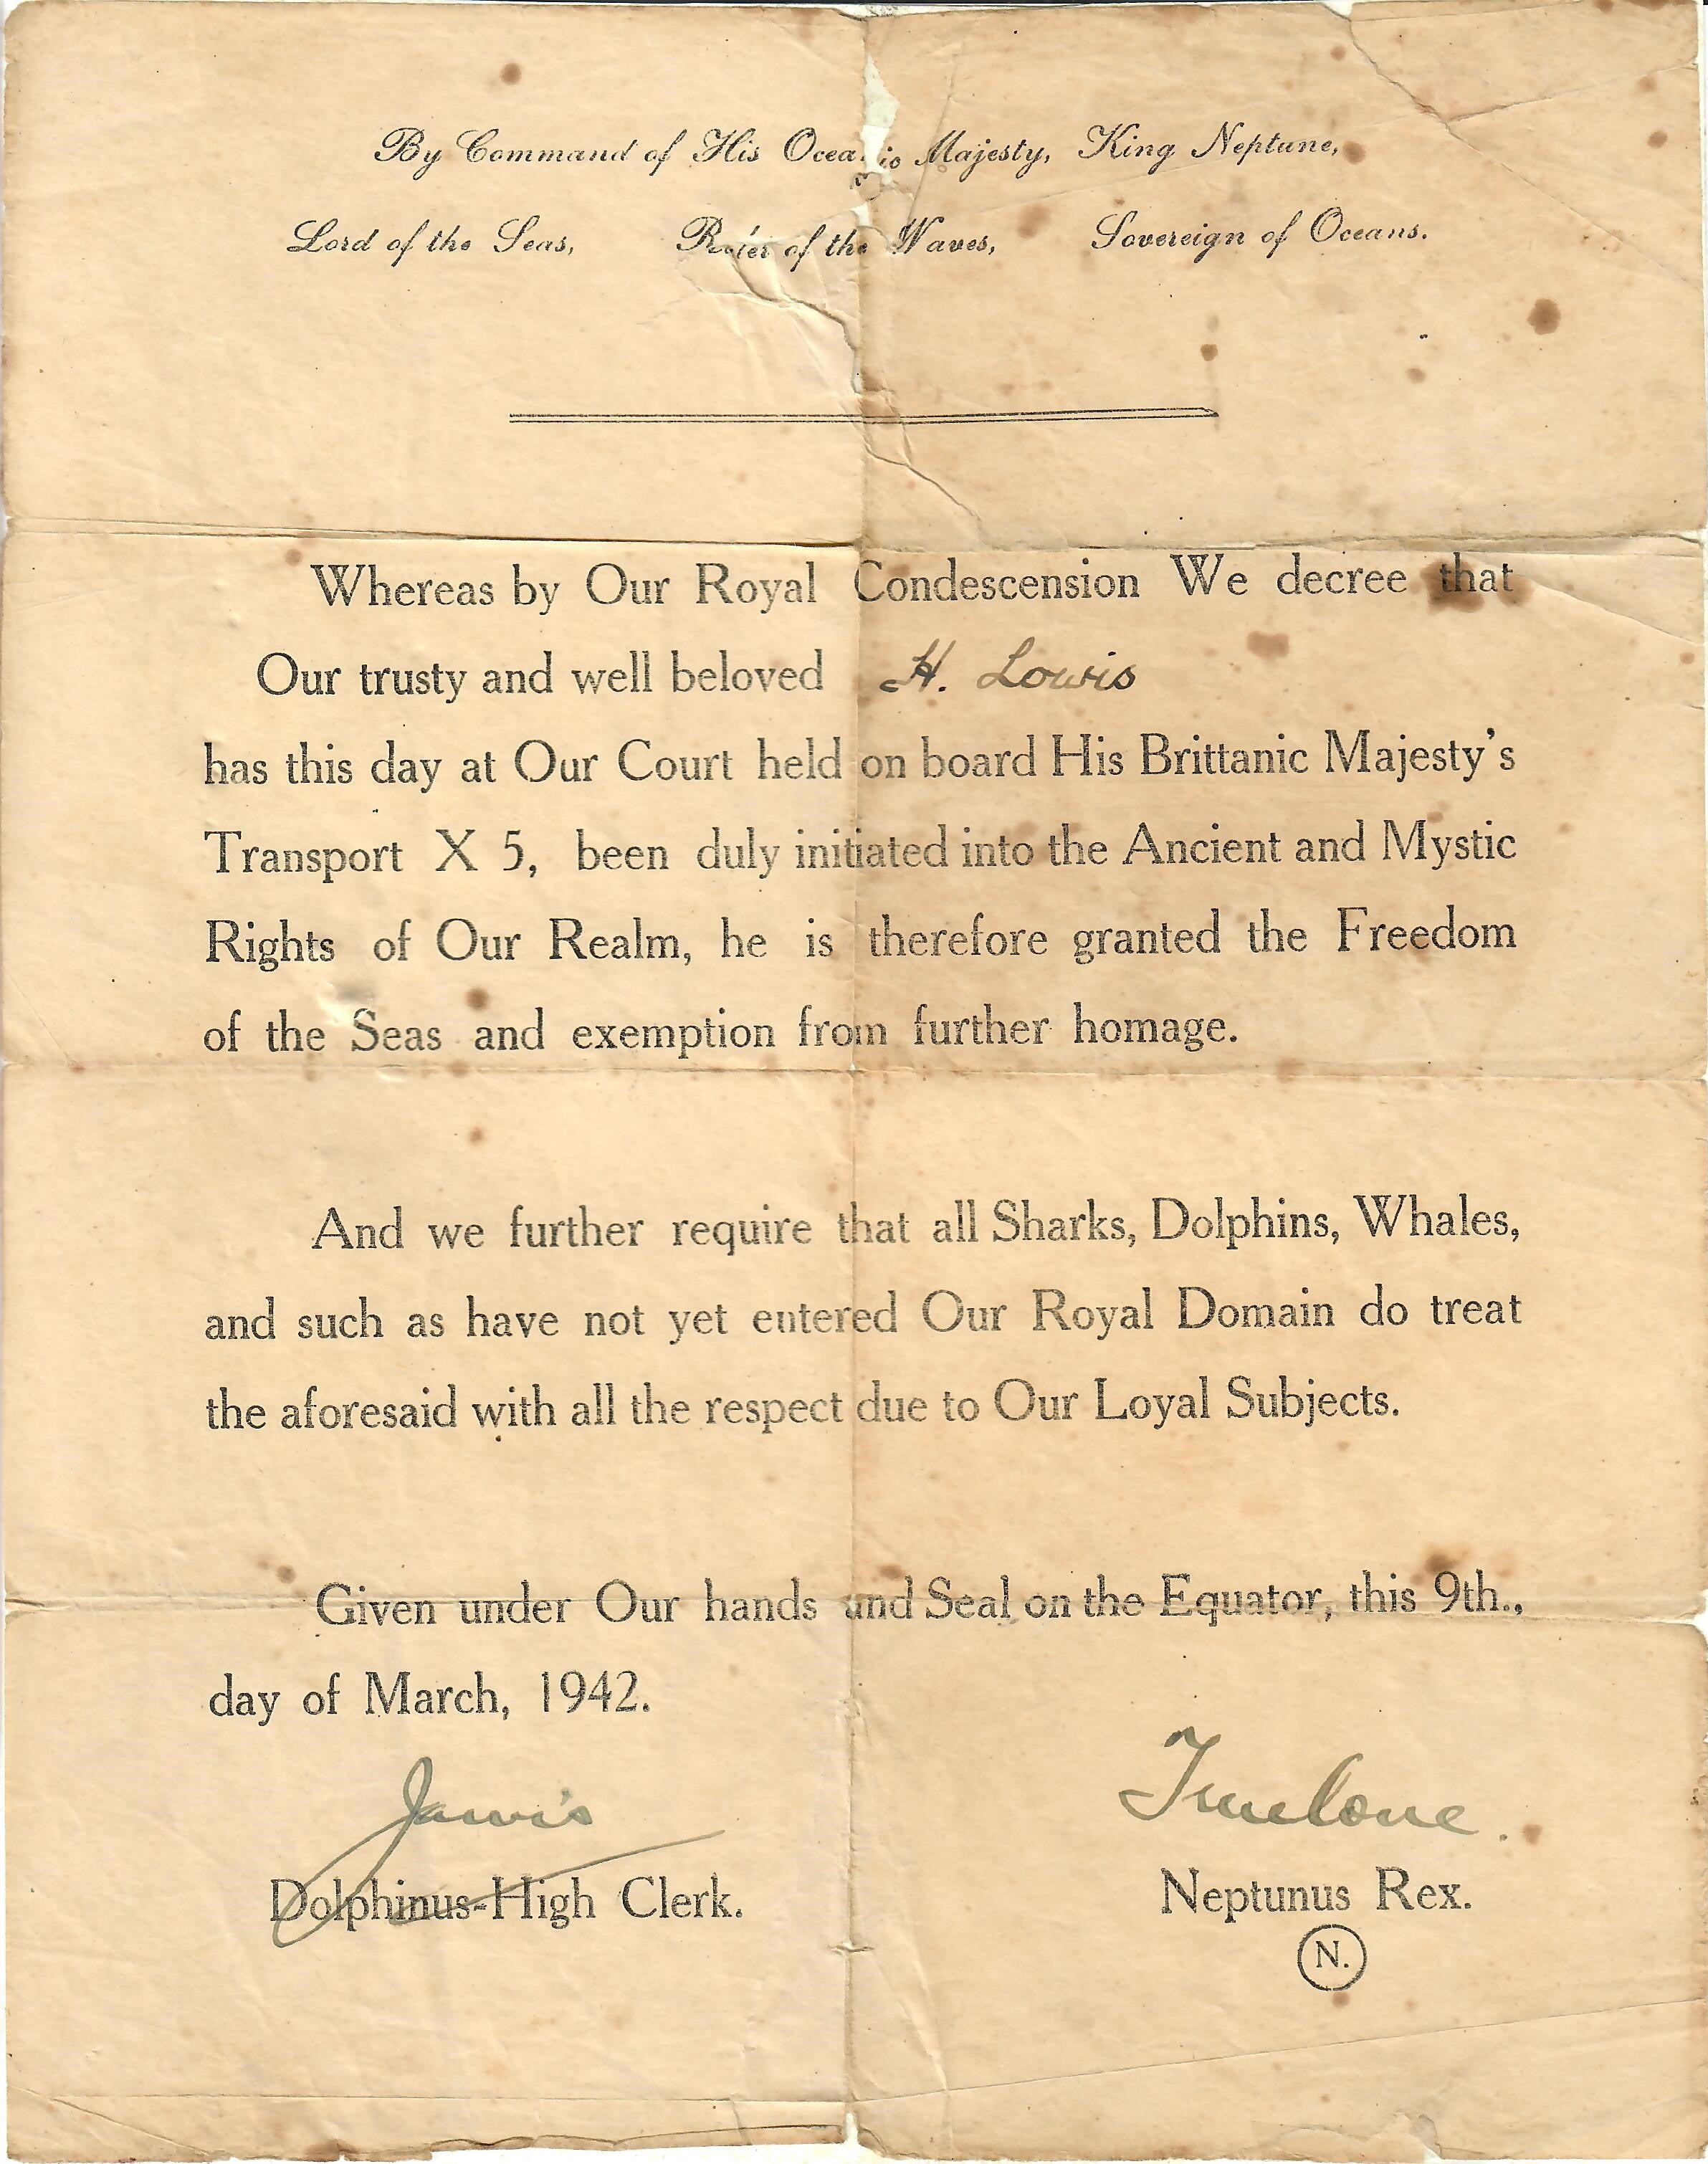 By Command of His Oceanic Majesty, King Neptune,
Lord of the Seas, Ruler of the Waves, Sovereign of Oceans.
Whereas by Our Royal Condescension We decree that
Our trusty and well beloved H. Lowis
has this day at Our Court held on board His Brittanic Majesty's
Transport X 5, been duly initiated into the Ancient and Mystic
Rights of Our Realm, he is therefore granted the Freedom
of the Seas and exemption from further homage.
And we further require that all Sharks, Dolphins, Whales,
and such as have not yet entered Our Royal Domain do treat
the aforesaid with all the respect due to Our Loyal Subjects.
Given under Our hands and Seal on the Equator, this 9th.,
day of March, 1942.
Jarvis
Dolphinus-High Clerk.
Neptunus Rex.
N.